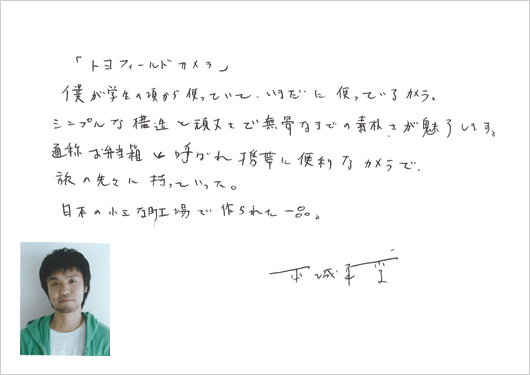 「トヨフィールドカメラ」
僕が学生の頃から使っていて、いまだに使っているカメラ。
シンプルな構造と頑丈さで無骨なまでの素朴さが魅了します。
通称お弁当箱と呼ばれ携帯に便利なカメラで、
旅の先々に持っていった。
日本の小さな町工場で作られた一品。